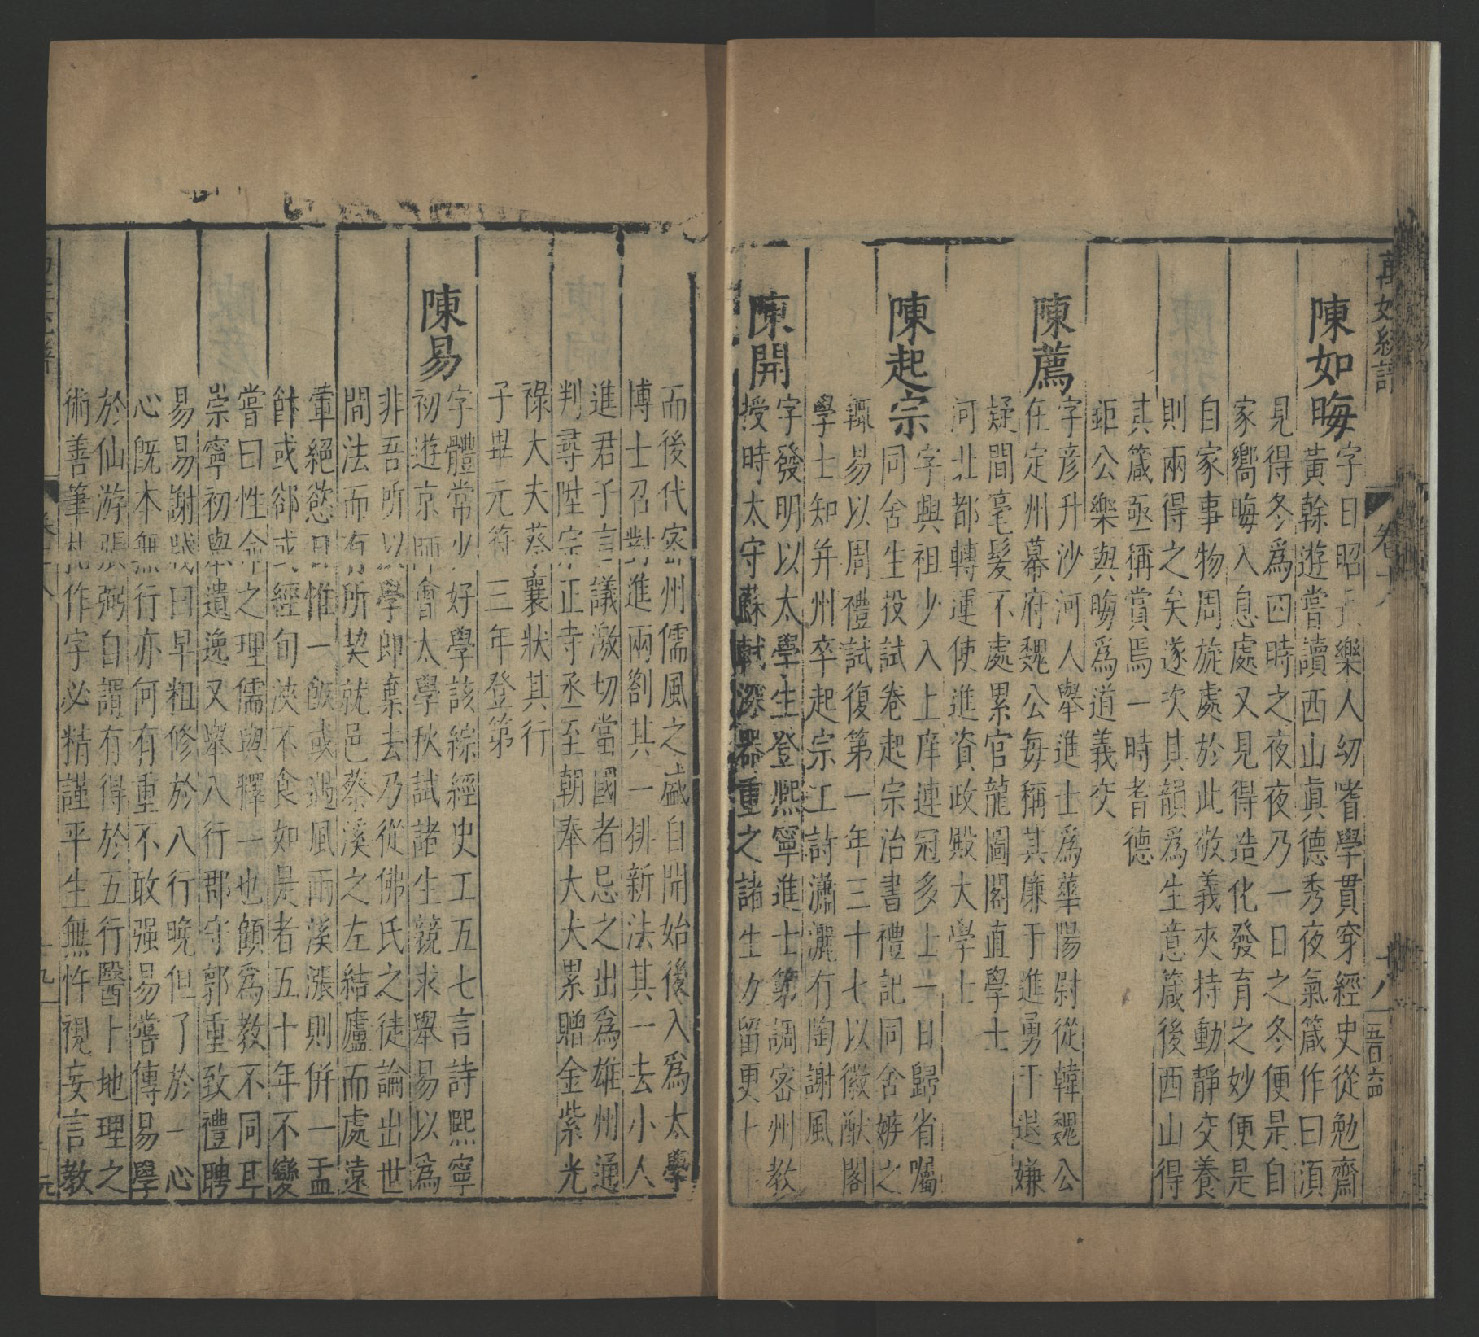 萬姓統譜
卷十八
陳如晦字日昭長樂人幼嗜學貫穿經史從勉齋
黃榦遊嘗讀西山眞德秀夜氣箴作曰須
見得冬爲四時之夜夜乃一日之冬便是自
家嚮晦入息處又見得造化發育之妙便是
自家事物周旋處於此敬義夾持動靜交養
則兩得之矣遂次其韻爲生意箴後西山得
其箴亟稱賞焉一時耆德
鉅公樂與晦爲道義交
陳薦字彥升沙河人舉進士爲華陽尉從韓魏公
在定州幕府魏公每稱其廉于進勇于退嫌
疑間毫髮不處累官龍圖閣直學士
河北都轉運使進資政殿大學士
陳起宗字與祖少入上庠連冠多士一日歸省囑
同舍生投試卷起宗治書禮記同舍嫉之
輒易以周禮試復第一年三十七以徽猷閣
學士知幷州卒起宗工詩瀟灑有陶謝風
陳開字發明以太學生登熙寧進士第調密州教
授時太守蘇軾深器重之諸生必留更十
而後代密州儒風之盛自開始後入爲太學
博士召對進兩劄其一排新法其一去小人
進君子言議激切當國者忌之出爲雄州通
判尋陞宗正寺丞至朝奉大夫累贈金紫光
祿大夫蔡襄狀其行
子畢元符三年登第
陳易字體常少好學該綜經史工五七言詩熙寧
初遊京師會太學秋試諸生競求舉易以爲
非吾所以學即棄去乃從佛氏之徒論出世
間法而有所契就邑蔡溪之左結廬而處遠
葷絕慾日惟一飯或遇風雨溪漲則併一盂
飰或郤或經旬浹不食如是者五十年不變
嘗曰性命之理儒與釋一也顧爲教不同耳
崇寧初舉遺逸又舉八行郡守郭重致禮聘
易易謝賤曰早粗修於八行晚但了於一心
心旣本無行亦何有重不敢强易嘗傳易學
於仙游張弼自謂有得於五行醫卜地理之
術善筆札作字必精謹平生無忤視妄言教